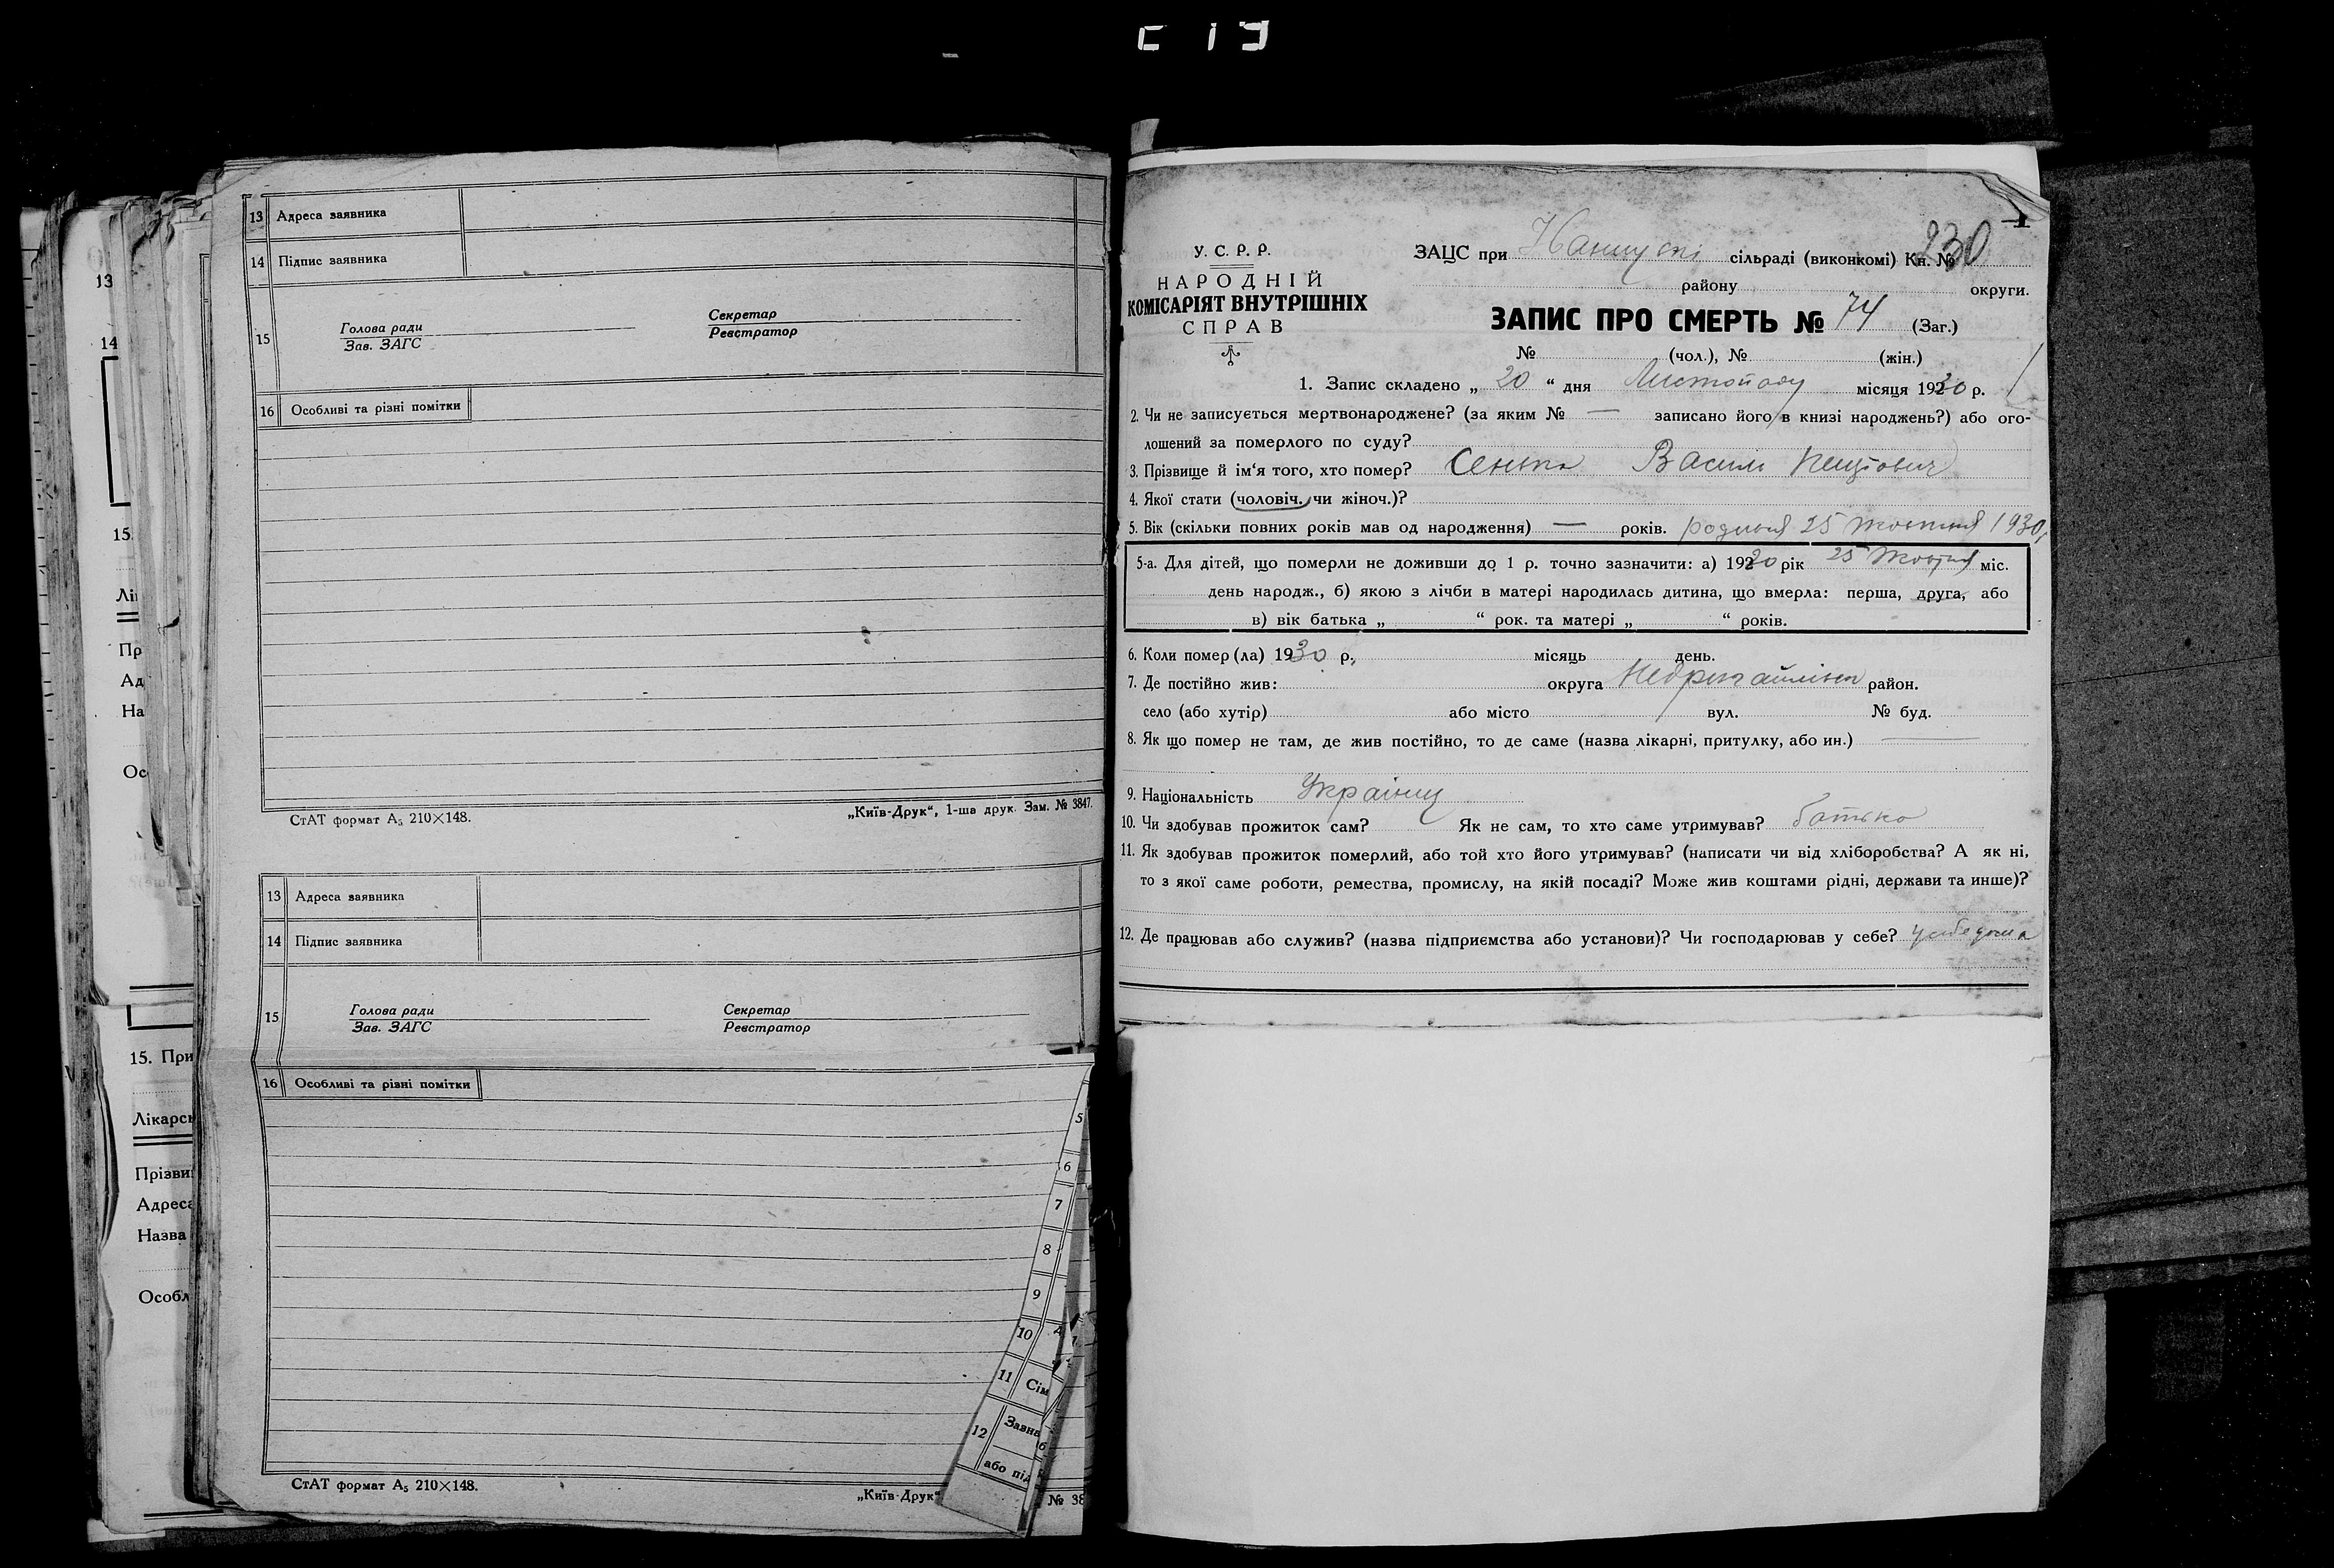 13 Адреса заявника
14 Підпис заявника
15 Голова ради
Зав. ЗАГС
Секретар
Реєстратор
16 Особливі та різні помітки
СтАТ формат А₅ 210×148.
„Київ-Друк“, 1-ша друк. Зам. № 3847.
13 Адреса заявника
14 Підпис заявника
15 Голова ради
Зав. ЗАГС
Секретар
Реєстратор
16 Особливі та різні помітки
5
6
7
8
9
10
11 Сім
12 Завна
або під
СтАТ формат А₅ 210×148.
„Київ-Друк“
№ 38
13
14
15.
Лі
Пр
Ад
На
Ос
15. При
Лікарсь
Прізви
Адреса
Назва
Особл
У. С. Р. Р.
НАРОДНІЙ
КОМІСАРІЯТ ВНУТРІШНІХ
СПРАВ
ЗАЦС при сільраді (виконкомі) Кн. № 230
району округи.
ЗАПИС ПРО СМЕРТЬ № 74 (Заг.)
№ (чол.), № (жін.)
1. Запис складено „ 20 “ дня Листопаду місяця 1930 р.
2. Чи не записується мертвонароджене? (за яким № — записано його в книзі народжень?) або ого-
лошений за померлого по суду?
3. Прізвище й ім‘я того, хто помер? Сенька Василь
4. Якої стати (чоловіч. чи жіноч.)?
5. Вік (скільки повних років мав од народження) — років. родився 25 жовтня 1930 р.
5-а. Для дітей, що померли не доживши до 1 р. точно зазначити: а) 1930 рік 25 Жовтня міс.
день народж., б) якою з лічби в матері народилась дитина, що вмерла: перша, друга, або
в) вік батька „ “ рок. та матері „ “ років.
6. Коли помер (ла) 1930 р., місяць день.
7. Де постійно жив: округа район.
село (або хутір) або місто вул. № буд.
8. Як що помер не там, де жив постійно, то де саме (назва лікарні, притулку, або ин.) —
9. Національність Українц
10. Чи здобував прожиток сам? Як не сам, то хто саме утримував? батько
11. Як здобував прожиток померлий, або той хто його утримував? (написати чи від хліборобства? А як ні,
то з якої саме роботи, ремества, промислу, на якій посаді? Може жив коштами рідні, держави та инше)?
12. Де працював або служив? (назва підприємства або установи)? Чи господарював у себе? у себе дома